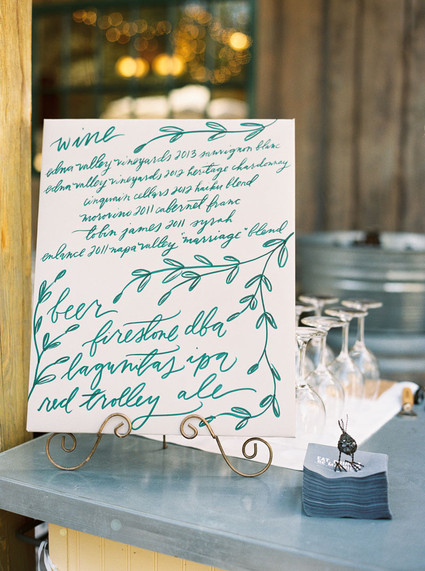 wine
edna valley vineyards 2013 sauvignon blanc
edna valley vineyards 2012 heritage chardonnay
cinquain cellars 2012 haiku blend
morovino 2011 cabernet franc
tobin james 2011 syrah
enhance 2011 napa valley "marriage" blend
beer
firestone dba
lagunitas ipa
red trolley ale